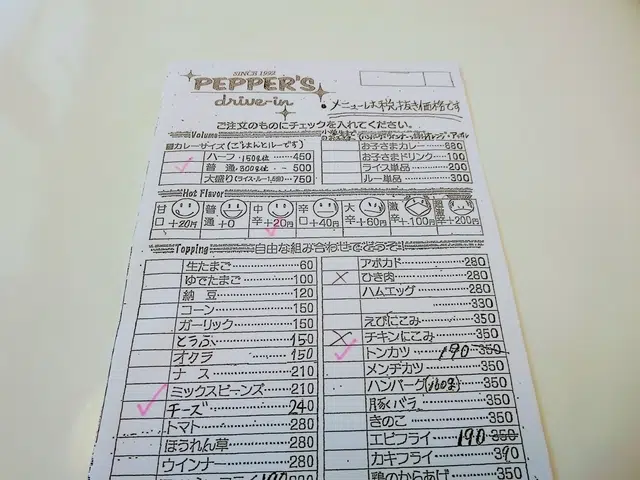 SINCE 1993
PEPPER'S
drive-in
・メニューは税抜き価格です
ご注文のものにチェックを入れてください。
Volume
カレーサイズ(ごはんとルーです)
ハーフ・150g位……450
普通・300g位……500
大盛り(ライス・ルー1.5倍)……750
お子さまカレー……680
お子さまドリンク……100
ライス単品……200
ルー単品……300
Hot Flavor
甘口+20円
普通+0
中辛+20円
辛口+40円
大辛+60円
激辛+100円
+200円
Topping
自由な組み合わせでどうぞ!
生たまご……60
ゆでたまご……100
納豆……120
コーン……150
ガーリック……150
とうふ……150
オクラ……150
ナス……210
ミックスビーンズ……210
チーズ……240
トマト……280
ほうれん草……280
ウインナー……280
190
アボカド……280
ひき肉……280
ハムエッグ……280
……330
えびにこみ……350
チキンにこみ……350
トンカツ……190 350
メンチカツ……350
ハンバーグ(160g)……350
豚バラ……350
きのこ……350
エビフライ……190 350
カキフライ……390
鶏のからあげ……350